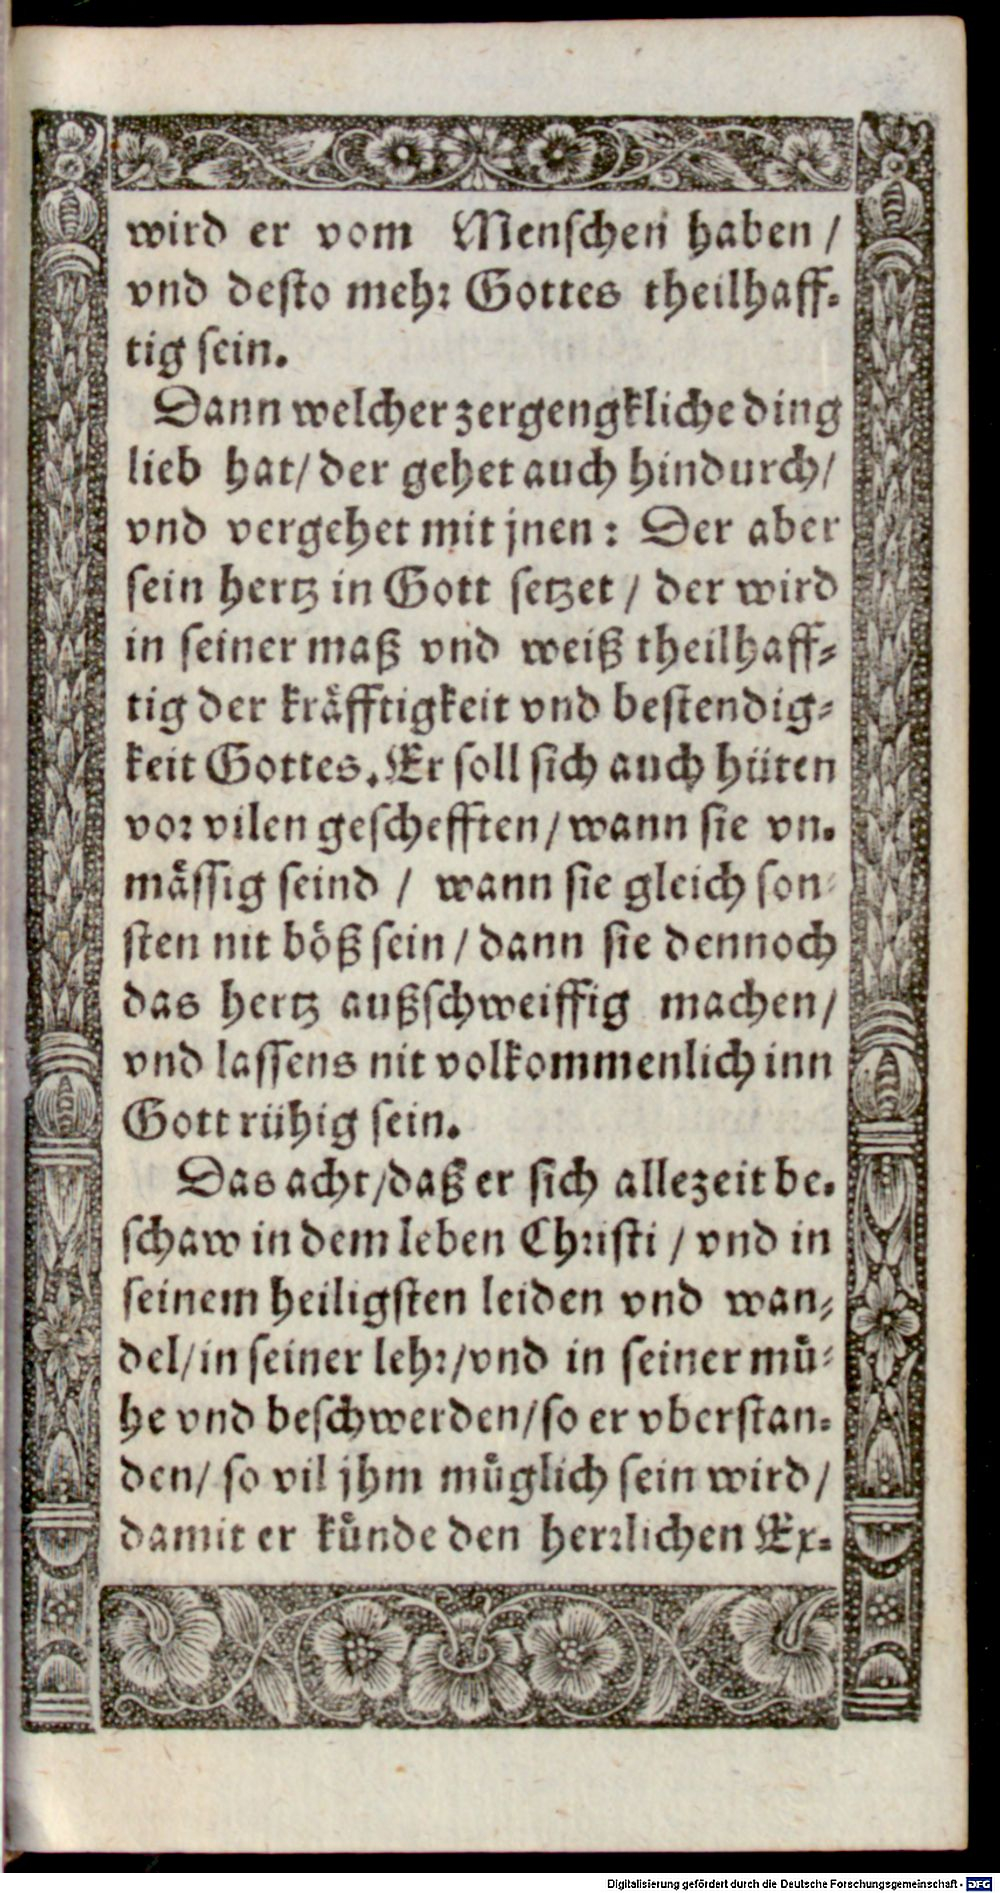 wird er vom Menschen haben /
vnd desto mehr Gottes theilhaff-
tig sein.
Dann welcher zergengkliche ding
lieb hat / der gehet auch hindurch /
vnd vergehet mit jnen : Der aber
sein hertz in Gott setzet / der wird
in seiner maß vnd weiß theilhaff-
tig der kräfftigkeit vnd bestendig-
keit Gottes. Er soll sich auch hüten
vor vilen geschefften / wann sie vn-
mässig seind / wann sie gleich son-
sten nit böß sein / dann sie dennoch
das hertz außschweiffig machen /
vnd lassens nit volkommenlich inn
Gott rühig sein.
Das acht / daß er sich allezeit be-
schaw in dem leben Christi / vnd in
seinem heiligsten leiden vnd wan-
del / in seiner lehr / vnd in seiner mů-
he vnd beschwerden / so er vberstan-
den / so vil jhm můglich sein wird /
damit er kůnde den herrlichen Ex-
Digitalisierung gefördert durch die Deutsche Forschungsgemeinschaft - DFG